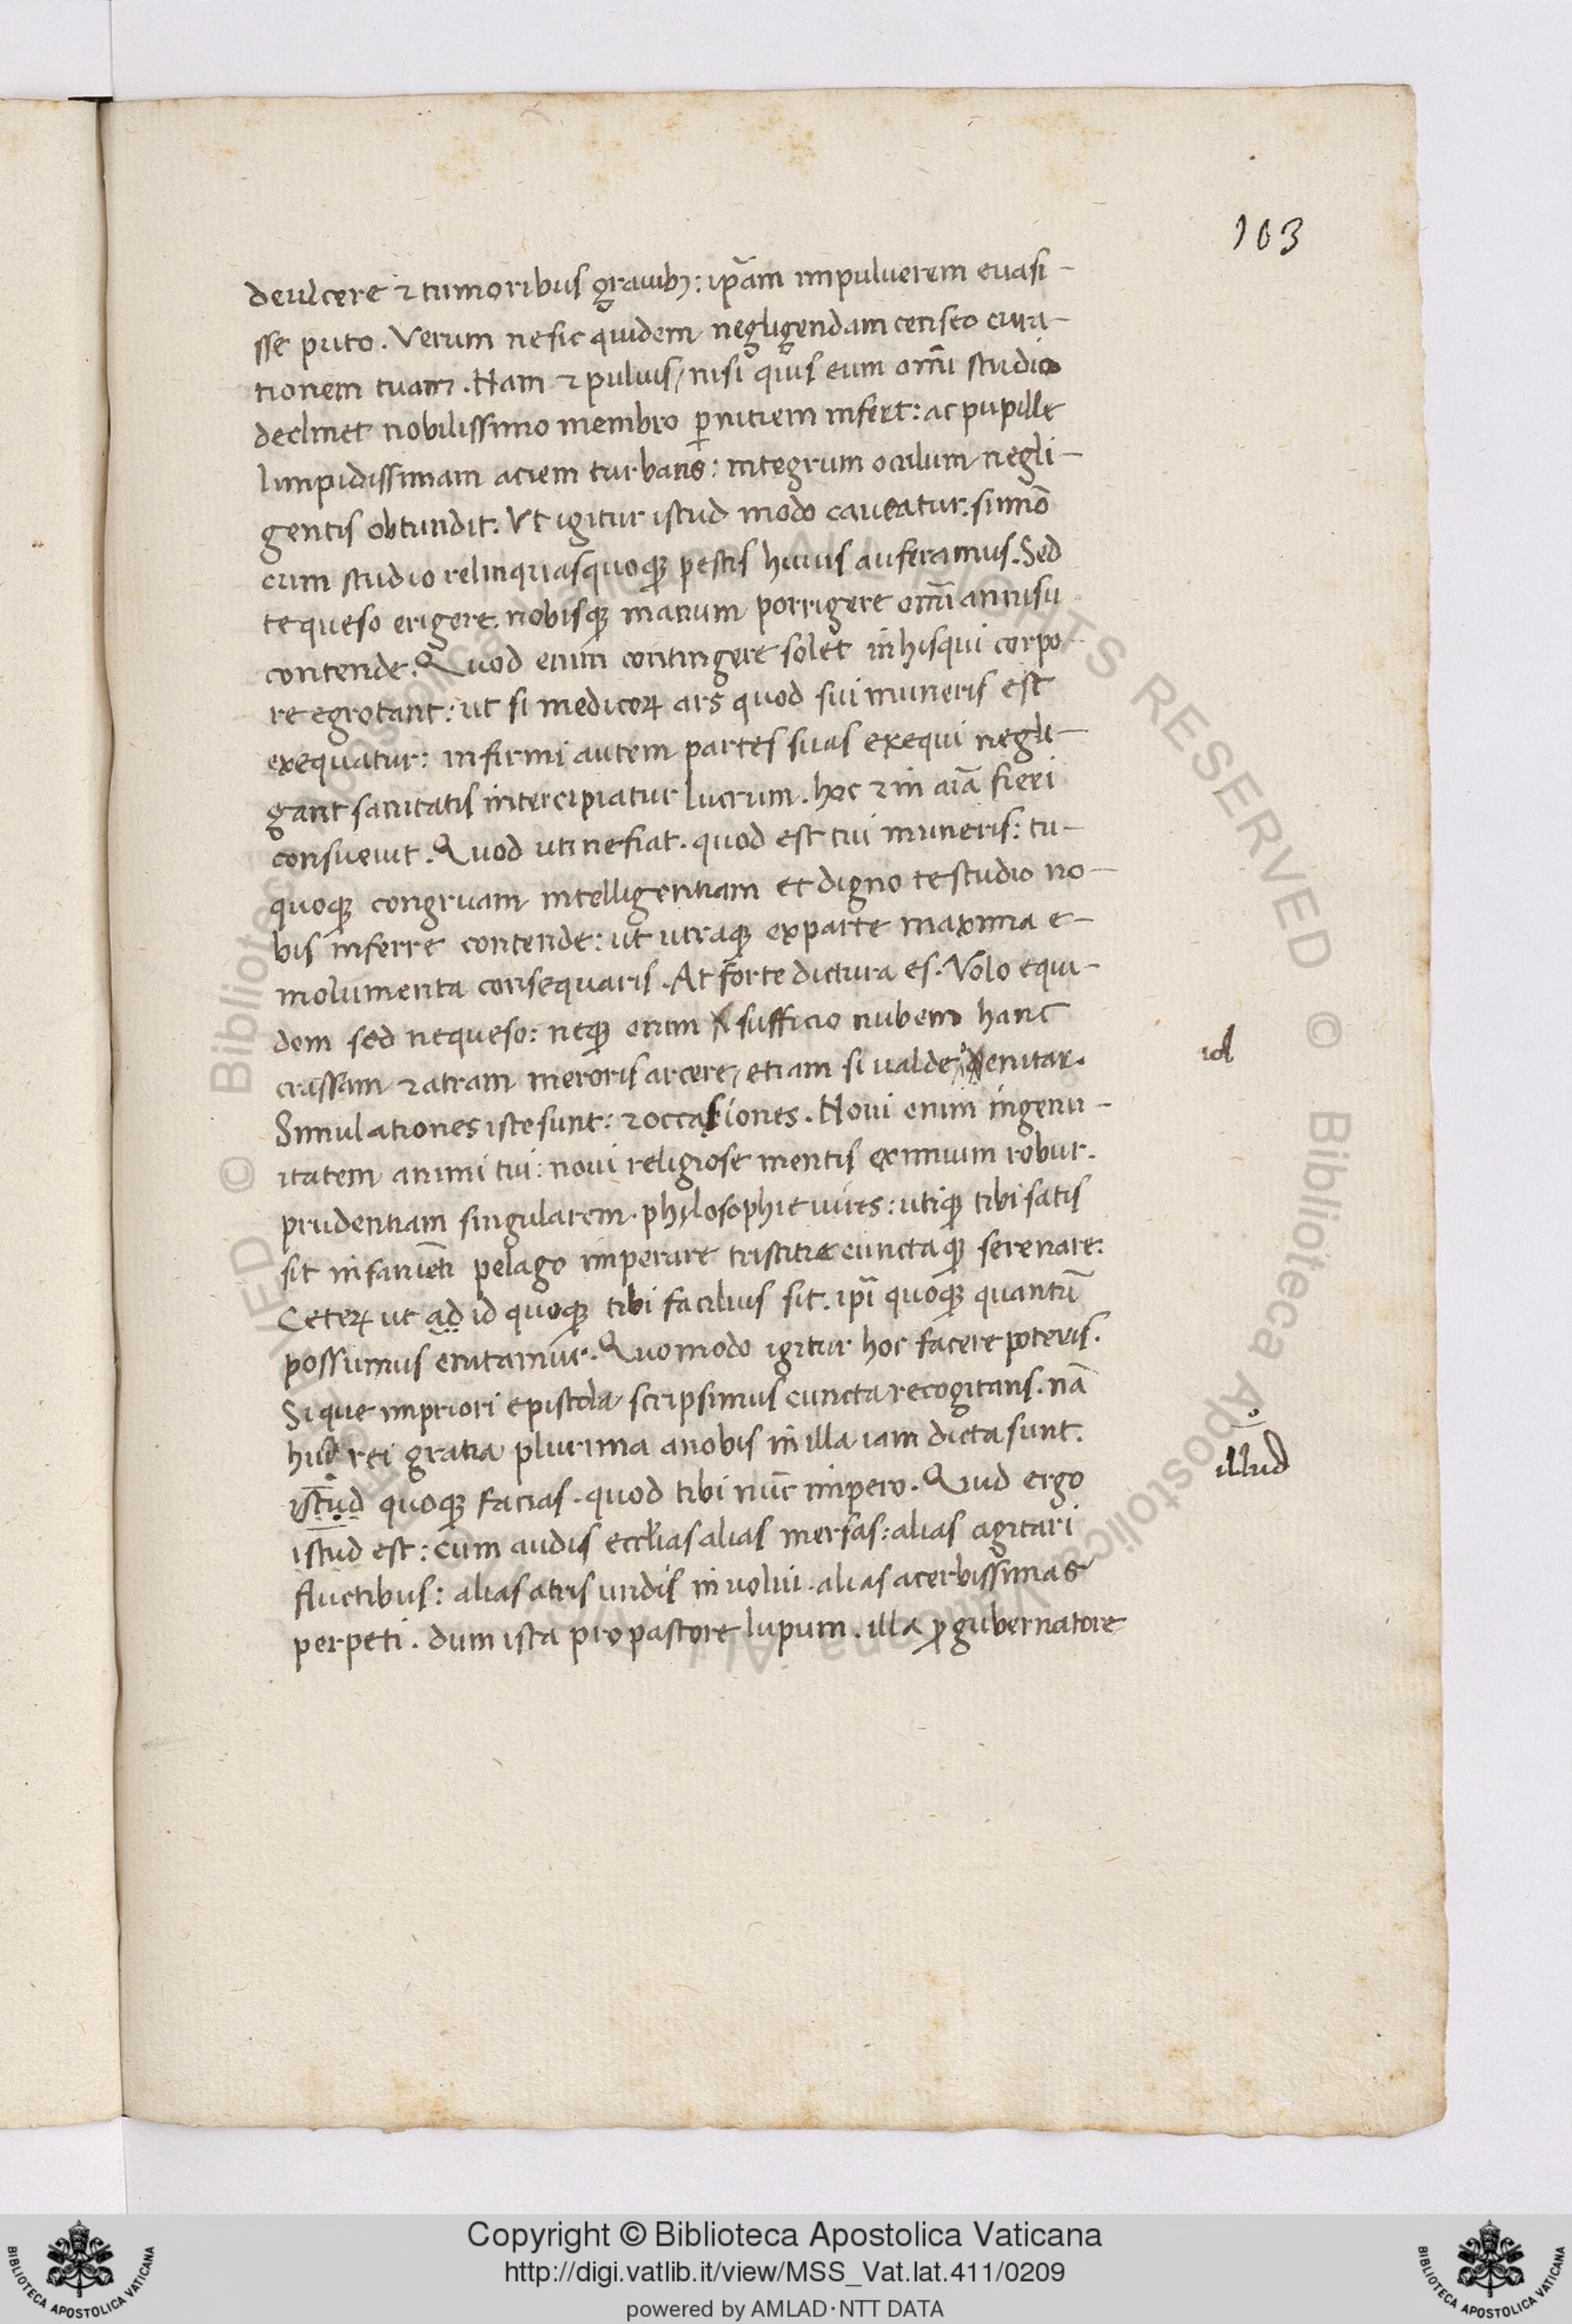 103
deulcere & tumoribus grauibꝫ: ip̃am inpuluerem euasi-
sse puto. Verum nesic quidem negligendam censeo cura-
tionem tuam. Nam & puluis, nisi quis eum om̃i studio
declinet nobilissimo membro ꝑnitiem infert: ac pupille
limpidissimam aciem turbans: integrum oculum negli-
gentis obtundit. Vt igitur istud modo caueatur. sum̃o
cum studio relinquias quoqꝫ pestis huius auferamus. Sed
te queso erigere. nobisqꝫ manum porrigere om̃i annisu
contende. Quod enim contingere solet in hisqui corpo-
re egrotant: ut si medicoꝝ ars quod sui muneris est
exequatur: infirmi autem partes suas exequi negli-
gant sanitatis intercipiatur lucrum. hoc & in aĩa fieri
consueuit. Quod uti nefiat. quod est tui muneris: tu-
quoqꝫ congruam intelligentiam et digno te studio no-
bis inferre contende: ut utraqꝫ exparte maxima e-
molumenta consequaris. At forte dictura es. Volo equi-
dem sed nequeso: neqꝫ enim sufficio nubem hanc
crassam & atram meroris arcere, etiam si ualde enitar.
id
Simulationes iste sunt: & occasiones. Noui enim ingenu-
itatem animi tui: noui religiose mentis eximium robur.
prudentiam singularem. phylosophie uires: utiqꝫ tibi satis
sit insanieñti pelago imperare tristitie cunctaqꝫ serenare:
Ceteꝝ ut ad id quoqꝫ tibi facilius sit. ip̃i quoqꝫ quantũ
possumus enitamur. Quomodo igitur hoc facere poteris.
Si que inpriori epistola scripsimus cuncta recogitans. nã
huic rei gratia plurima anobis in illa iam dicta sunt.
istud quoqꝫ facias. quod tibi nũc impero. Quid ergo
illud
istud est: cum audis eccl̃ias alias mersas: alias agitari
fluctibus: alias atris undis inuolui. alias acerbissimas
perpeti. dum ista pro pastore lupum. illa ꝓ gubernatore
Copyright © Biblioteca Apostolica Vaticana
http://digi.vatlib.it/view/MSS_Vat.lat.411/0209
powered by AMLAD·NTT DATA